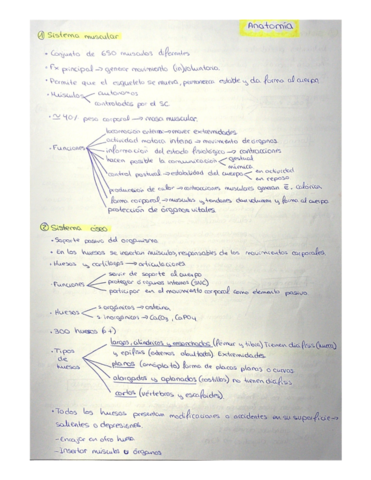 Anatomía
① Sistema muscular
• Conjunto de 650 músculos diferentes
• Fx principal → generar movimiento (in)voluntario.
• Permite que el esqueleto se mueva, permanezca estable y da forma al cuerpo.
• Músculos autónomos
controlados por el SC.
• ≃ 40% peso corporal → masa muscular.
• Funciones
locomoción externa → mover extremidades
actividad motora interna → movimiento de órganos
información del estado fisiológico → contracciones
hacen posible la comunicación gestual
mímica
control postural → estabilidad del cuerpo en actividad
en reposo
producción de calor → contracciones musculares generan E. calórica.
forma corporal → músculos y tendones dan volumen y forma al cuerpo
protección de órganos vitales.
② Sistema óseo
• Soporte pasivo del organismo
• En los huesos se insertan músculos, responsables de los movimientos corporales.
• Huesos y cartílagos → articulaciones
• Funciones
servir de soporte al cuerpo
proteger órganos internos (SNC)
participar en el movimiento corporal como elemento pasivo
• Huesos
s. orgánicas → osteína
s. inorgánicas → CaCO3, CaPO4
• 300 huesos (±)
• Tipos de huesos
largos, cilíndricos y ensanchados (fémur y tibia) Tienen diáfisis (hueco)
y epífisis (extremos abultados) Extremidades
planos (omóplato) forma de placas planas o curvas
alargados y aplanados (costilla) no tienen diáfisis
cortos (vértebras y escafoides).
• Todos los huesos presentan modificaciones o accidentes en su superficie →
salientes o depresiones.
- Encajar en otro hueso
- Insertar músculo u órganos